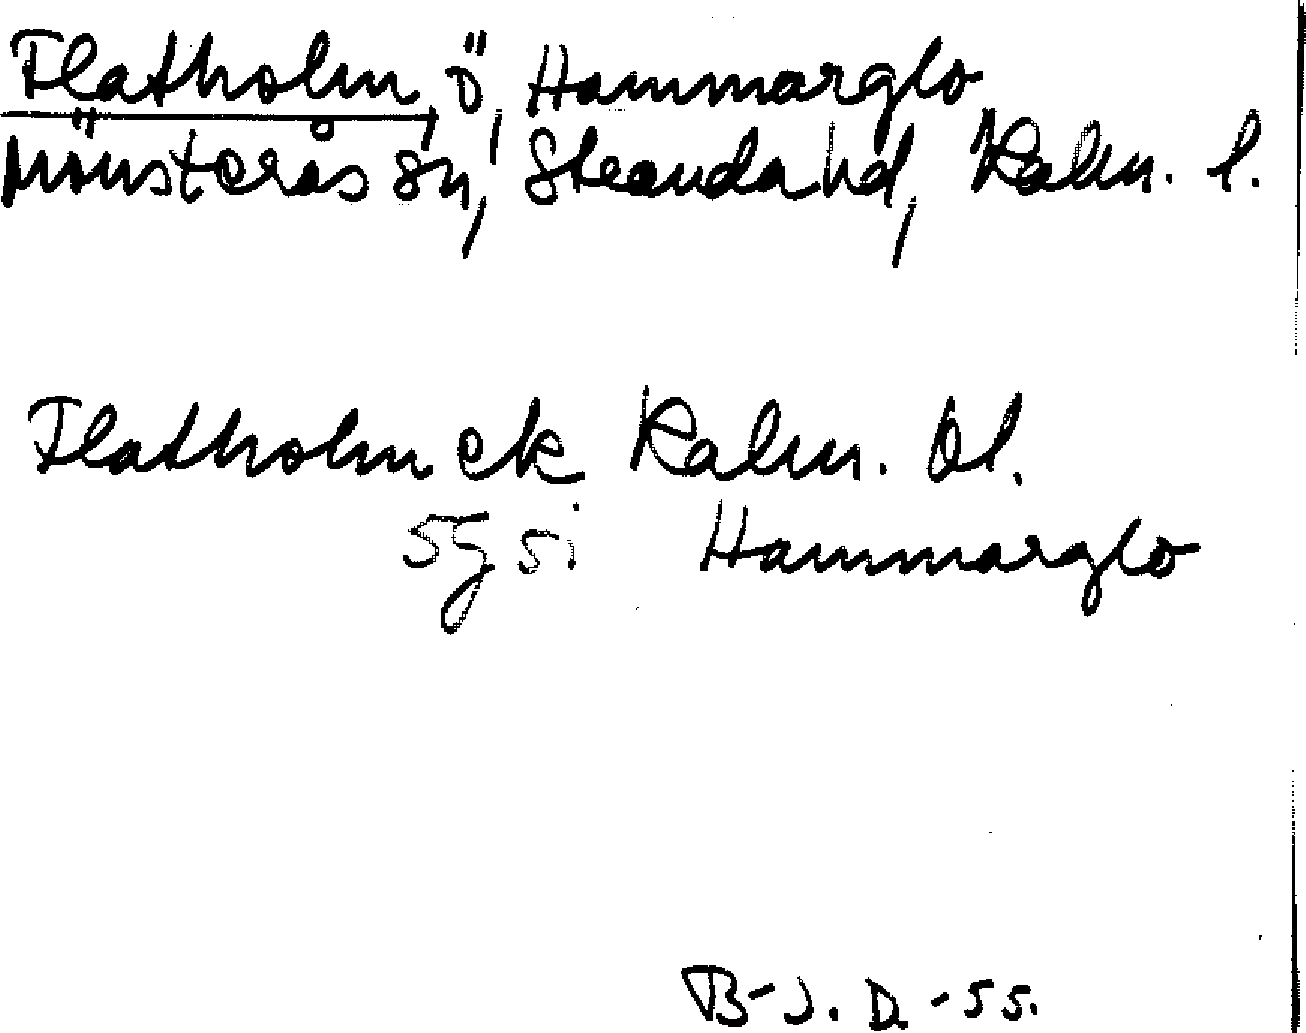 Flatholm, ö, Hammarglo
Mönsterås sn, Stranda hd, Kalm. l.
Flatholm ek Kalm. bl.
5g si Hammarglo
B-J. D. -55.